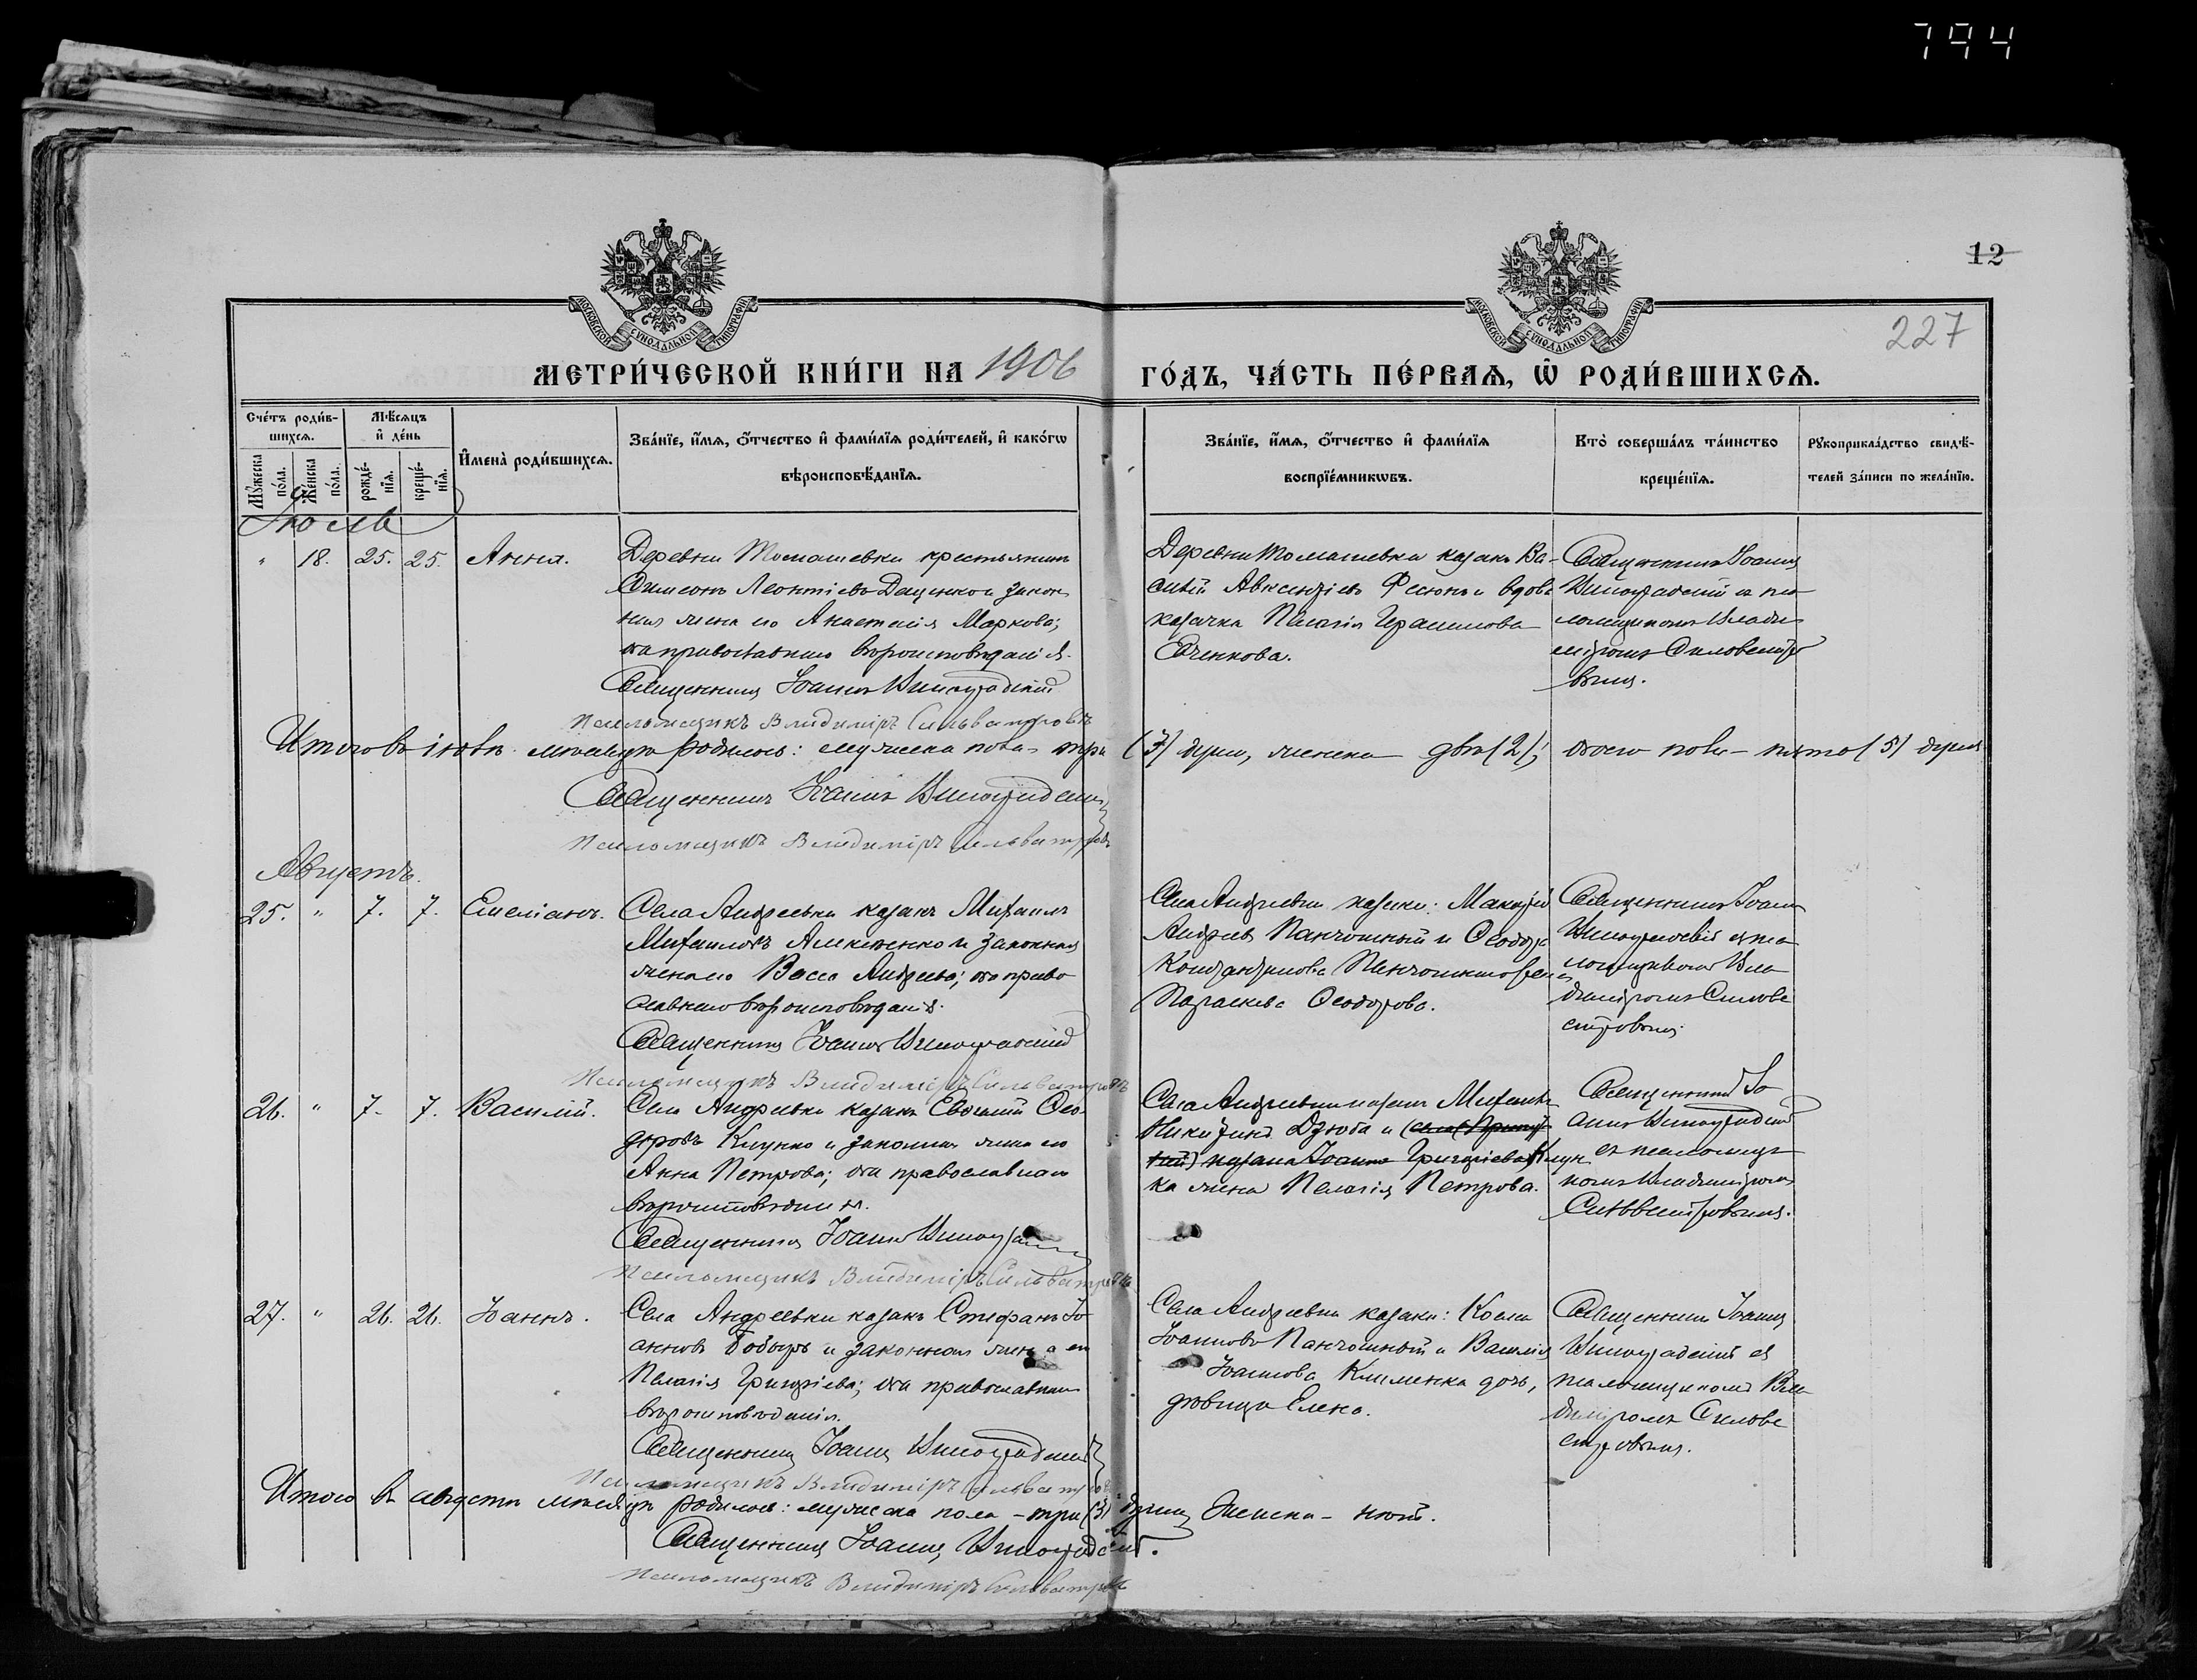 794
12
227
МОСКОВСКОЙ СѴНОДАЛЬНОЙ ТИПОГРАФІИ
МОСКОВСКОЙ СѴНОДАЛЬНОЙ ТИПОГРАФІИ
МЕТРИ́ЧЕСКОЙ КНИ́ГИ НА 1906 ГО́ДЪ, ЧА́СТЬ ПЕ́РВАѦ, Ѡ҆ РОДИ́ВШИХСѦ.
Сче́тъ роди́в-
шихсѧ.
Мꙋ́жеска по́ла.
Же́нска по́ла.
Мѣ́сѧцъ
и҆ де́нь
рожде́-
нїѧ.
креще́-
нїѧ.
И҆мена̀ роди́вшихсѧ.
Зва́нїе, и҆́мѧ, ѻ҆́тчество и҆ фами́лїѧ роди́телей, и҆ како́гѡ
вѣроисповѣ́данїѧ.
Зва́нїе, и҆́мѧ, ѻ҆́тчество и҆ фами́лїѧ
воспрїе́мникѡвъ.
Кто̀ соверша́лъ та́инство
креще́нїѧ.
Рꙋкоприкла́дство свидѣ́-
телей за́писи по жела́нїю.
Іюль
" 18. 25. 25. Анна.
Деревни Томашевки крестьянинъ
Симеонъ Леонтіевъ Дащенко и закон-
ная жена его Анастасія Маркова;
оба православнаго вѣроисповѣданія.
Священникъ Іоаннъ Виноградскій
Псаломщикъ Владиміръ Сильвестровъ
Деревни Томашевки казакъ Ва-
силій Авксентіевъ Фесюнъ и вдова
казачка Пелагія Герасимова
Священникъ Іоаннъ
Виноградскій съ пса-
ломщикомъ Влади-
міромъ Силвестро
вымъ.
Итого въ іюлѣ мѣсяцѣ родилось: мужеска пола - три (3) души, женска - двѣ (2); обоего пола - пять (5) душъ
Священникъ Іоаннъ Виноградскій
Псаломщикъ Владиміръ Сильвестровъ
Августъ.
25. " 7. 7. Емеліанъ.
Села Андреевки казакъ Михаилъ
Михаиловъ Алексеенко и законная
жена его Васса Андреева; оба право
славнаго вѣроисповѣданія.
Священникъ Іоаннъ Виноградскій
Псаломщикъ Владиміръ Сильвестровъ
Села Андреевки казаки: Макарій
Андреевъ Панчошный и Ѳеодора
Параскева Ѳеодорова.
Священникъ Іоаннъ
Виноградскій съ пса
ломщикомъ Вла
диміромъ Силве
стровымъ.
26. " 7. 7. Василій.
Села Андреевки казакъ Евѳимій Ѳео-
доровъ Клунко и законная жена его
Анна Петрова; оба православнаго
вѣроисповѣданія.
Священникъ Іоаннъ Виноградскій
Псаломщикъ Владиміръ Сильвестровъ
Села Андреевки казакъ Михаилъ
Никитинъ Дзюба и
казака Іоанна Григоріева Клун
ка жена Пелагія Петрова.
Священникъ Іо
аннъ Виноградскій
съ псаломщи
комъ Владиміромъ
Силвестровымъ.
27. " 26. 26. Іоаннъ.
Села Андреевки казакъ Стефанъ Іо-
анновъ Бобырь и законная жена его
Пелагія Григоріева; оба православнаго
вѣроисповѣданія.
Священникъ Іоаннъ Виноградскій
Псаломщикъ Владиміръ Сильвестровъ
Села Андреевки казаки: Косма
Іоанновъ Панчошный и Василія
Іоаннова Клименка дочь,
дѣвица Елена.
Священникъ Іоаннъ
Виноградскій съ
псаломщикомъ Вла-
диміромъ Силве
стровымъ.
Итого въ августѣ мѣсяцѣ родилось: мужеска пола - три (3) души, женска - нѣтъ.
Священникъ Іоаннъ Виноградскій.
Псаломщикъ Владиміръ Сильвестровъ